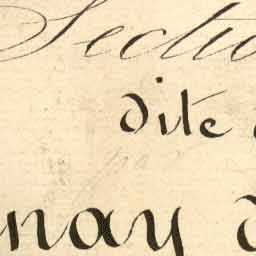 Sectio
dite
nay d